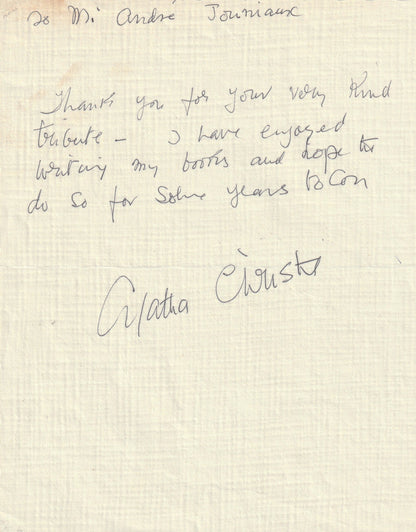 To Mr André Jouniaux
Thanks you for your very kind
tribute – I have enjoyed
writing my books and hope to
do so for some years to com
Agatha Christie